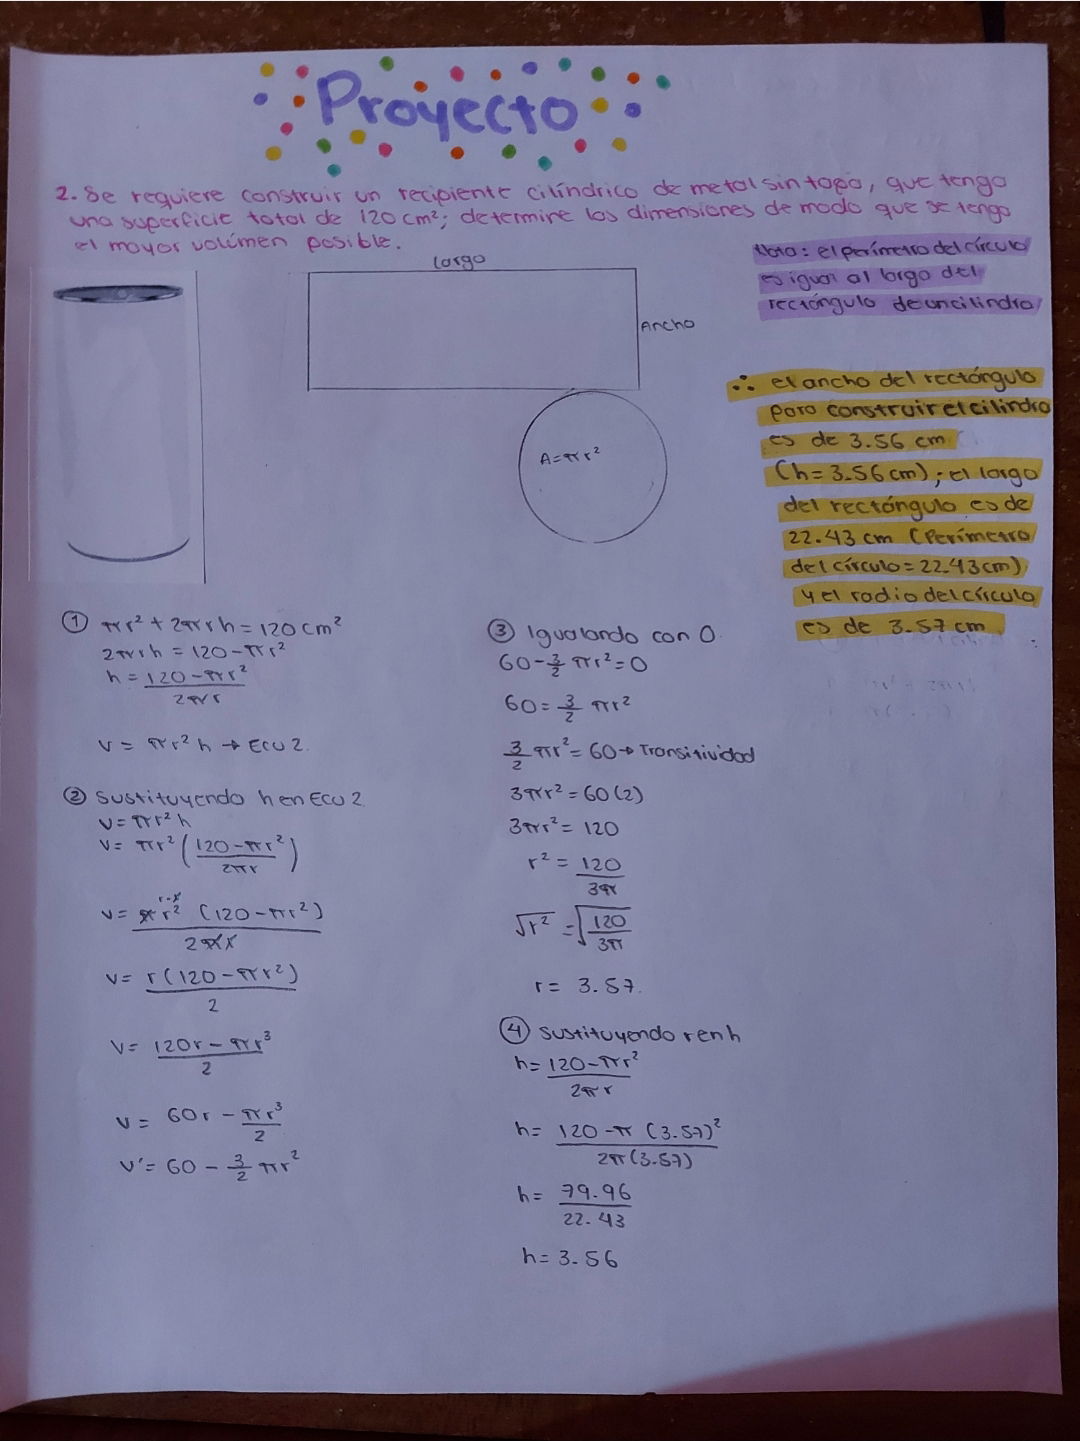 Proyecto
2. Se requiere construir un recipiente cilíndrico de metal sin tapa, que tenga
una superficie total de 120 cm²; determine las dimensiones de modo que se tenga
el mayor volúmen posible.
Largo
Ancho
A=πr²
Nota: el perímetro del círculo
es igual al largo del
rectángulo de un cilindro
∴ el ancho del rectángulo
para construir el cilindro
es de 3.56 cm
(h=3.56 cm); el largo
del rectángulo es de
22.43 cm (Perímetro
del círculo=22.43cm)
y el radio del círculo
es de 3.57 cm
① πr² + 2πrh = 120 cm²
2πrh = 120-πr²
h = 120-πr²
2πr
V = πr² h → Ecu 2.
② Sustituyendo h en Ecu 2
V = πr² h
V = πr² (120-πr²)
2πr
r·r
V = πr² (120-πr²)
2πr
V = r(120-πr²)
2
V = 120r - πr³
2
V = 60r - πr³
2
V' = 60 - 3/2 πr²
③ Igualando con 0.
60 - 3/2 πr² = 0
60 = 3/2 πr²
3/2 πr² = 60 → Transitividad
3πr² = 60(2)
3πr² = 120
r² = 120
3π
√r² = √120
3π
r = 3.57.
④ Sustituyendo r en h
h = 120-πr²
2πr
h = 120-π (3.57)²
2π(3.57)
h = 79.96
22.43
h = 3.56